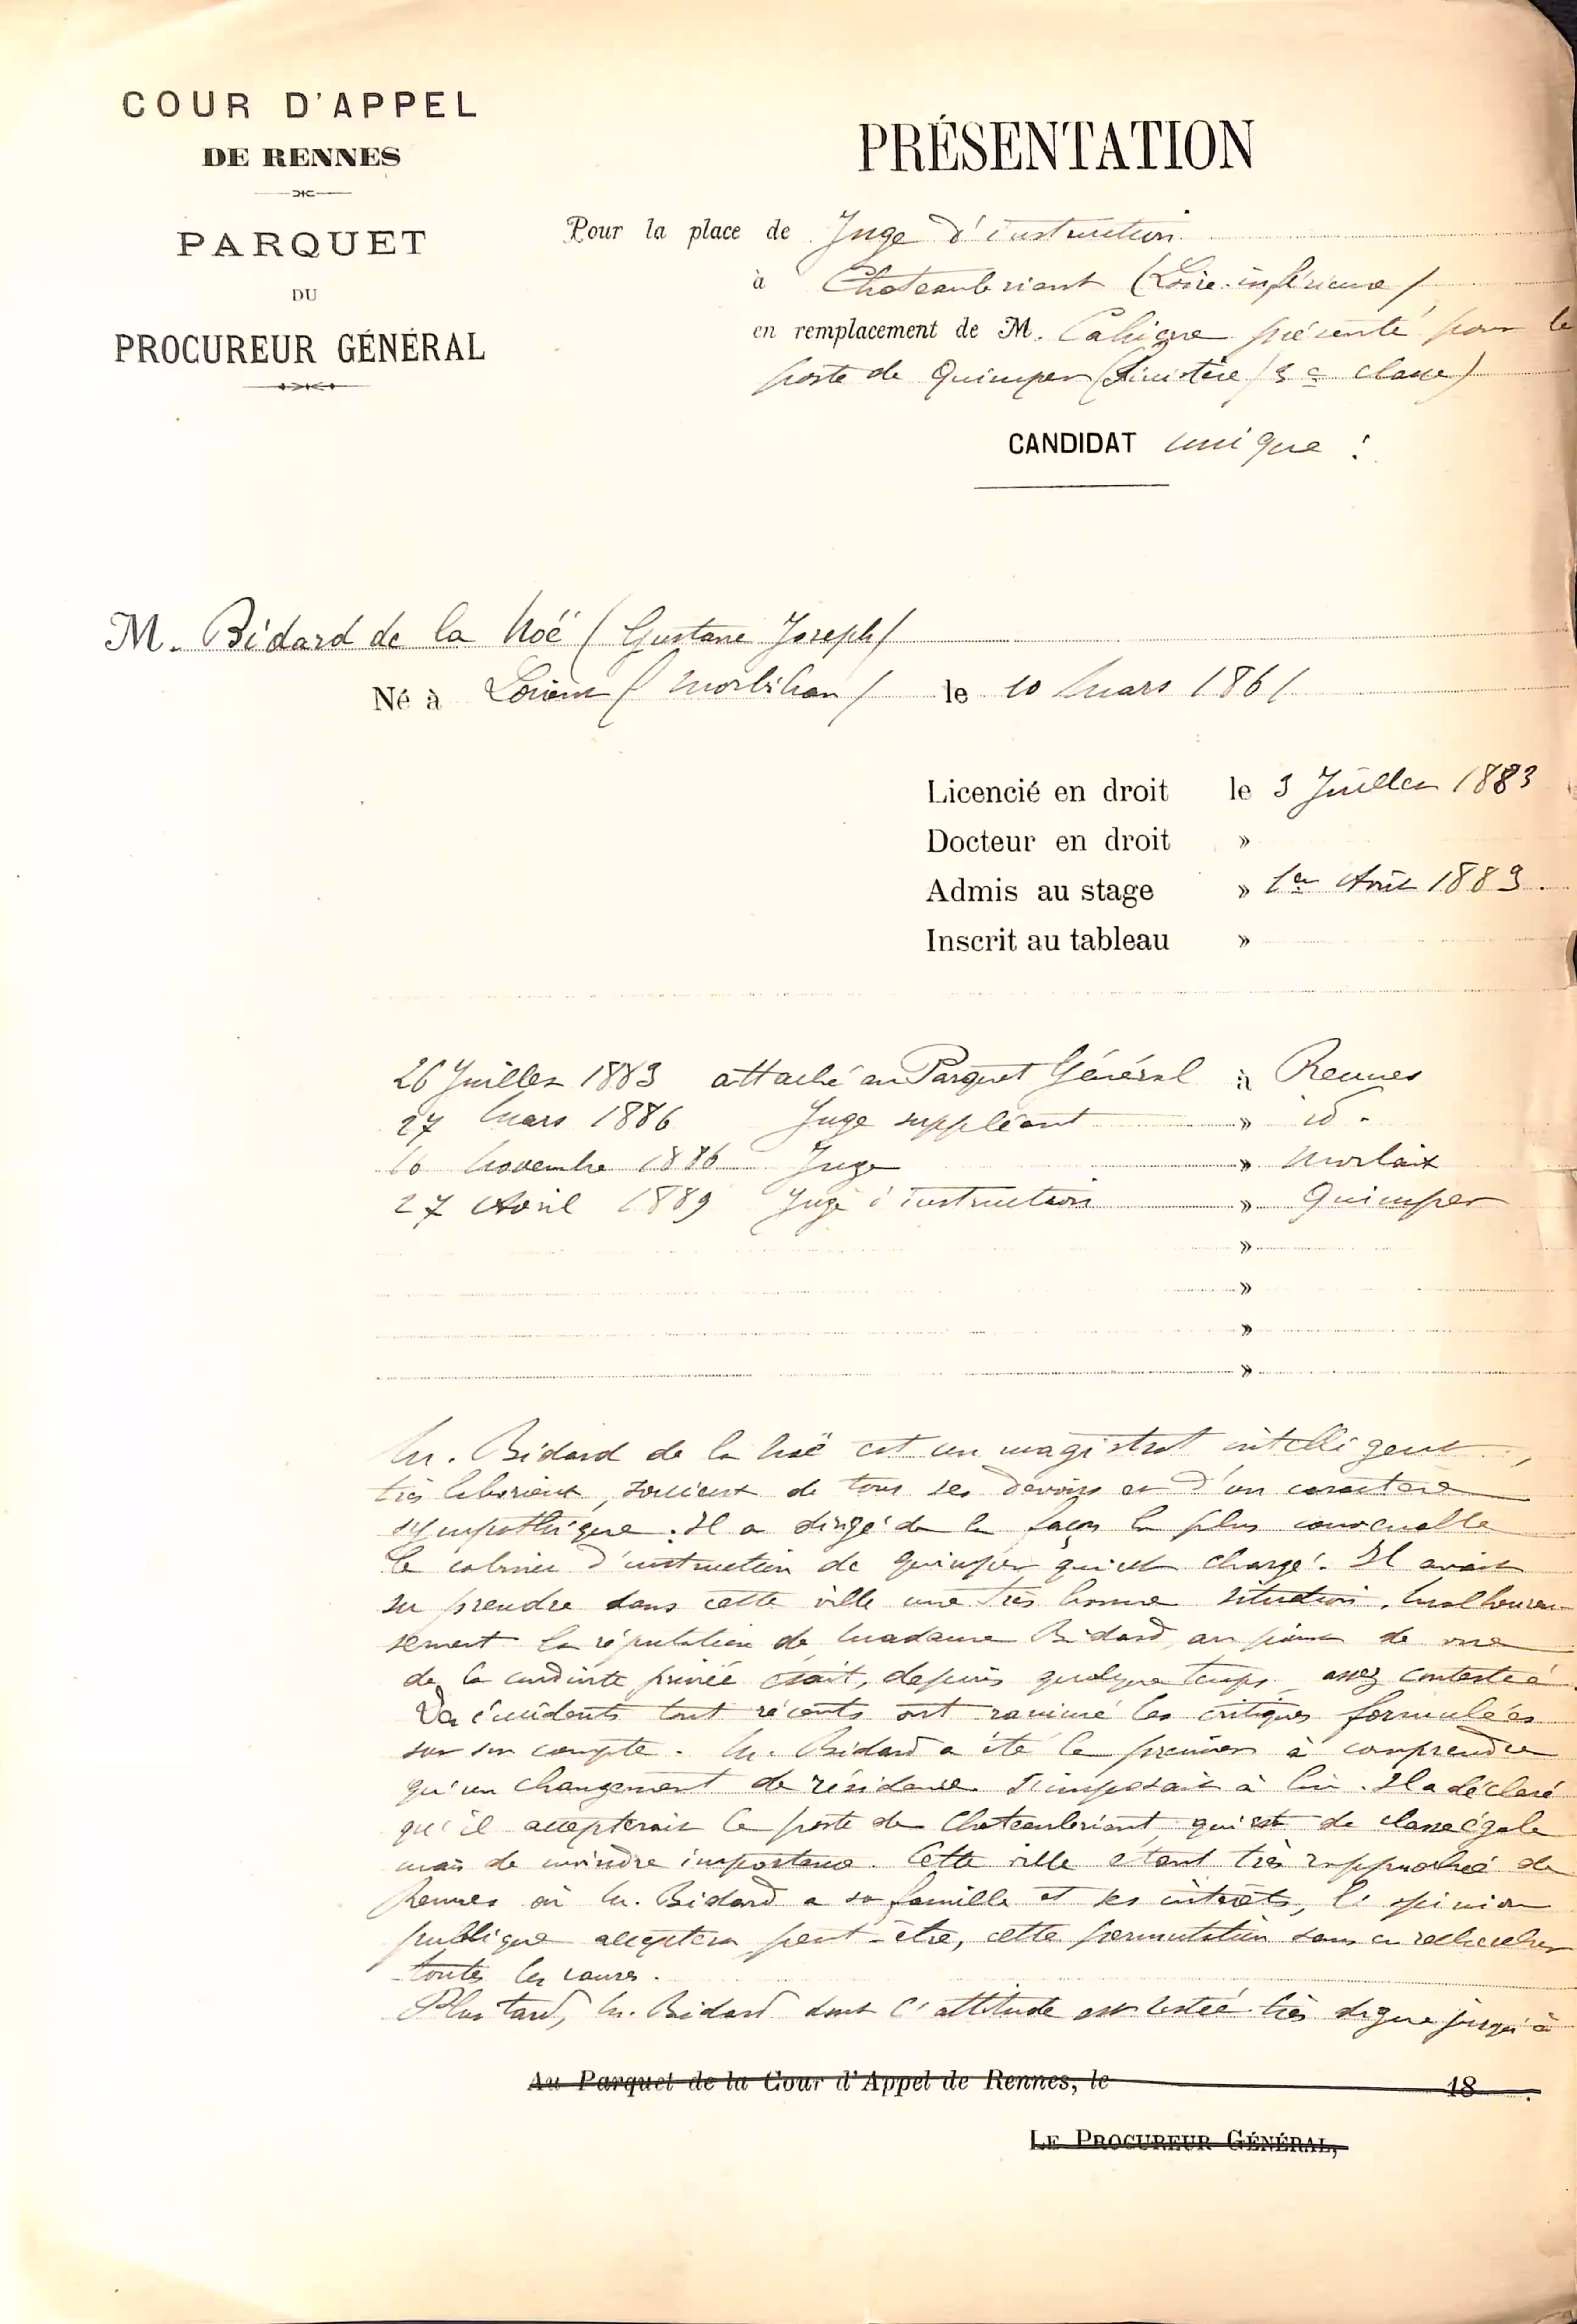 COUR D'APPEL
DE RENNES
PARQUET
DU
PROCUREUR GÉNÉRAL
PRÉSENTATION
Pour la place de Juge d'instruction
à Chateaubriant (Loire-inférieure)
en remplacement de M. Cahierre présenté pour le
poste de Quimper (Finistère) 3e classe)
CANDIDAT unique :
M. Bidard de la Noë (Gustave Joseph)
Né à Lorient (Morbihan) le 10 Mars 1861
Licencié en droit le 3 Juillet 1883
Docteur en droit »
Admis au stage » 1er Août 1883.
Inscrit au tableau »
26 Juillet 1883 attaché au Parquet Général à Rennes
27 Mars 1886 Juge suppléant » id.
16 Novembre 1886 Juge » Morlaix
27 Avril 1889 Juge d'instruction » Quimper
»
»
»
»
M. Bidard de la Noë est un magistrat intelligent,
très laborieux, soucieux de tous ses devoirs et d'un caractère
sympathique. Il a dirigé de la façon la plus convenable
le cabinet d'instruction de Quimper, qui est chargé. Il avait
su prendre dans cette ville une très bonne situation. Malheureu-
sement la réputation de Madame Bidard, au point de vue
de la conduite privée était, depuis quelque temps assez contestée.
Des incidents tout récents ont ranimé les critiques formulées
sur son compte. M. Bidard a été le premier à comprendre
qu'un changement de résidence s'imposait à lui. Il a déclaré
qu'il accepterait le poste de Chateaubriant, qui est de classe égale
mais de moindre importance. Cette ville étant très rapprochée de
Rennes où M. Bidard a sa famille et ses intérêts, l'opinion
publique acceptera peut-être, cette permutation sans en rechercher
toutes les causes.
Plus tard, M. Bidard dont l'attitude est restée très digne jusqu'à
Au Parquet de la Cour d'Appel de Rennes, le 18 .
LE PROCUREUR GÉNÉRAL,